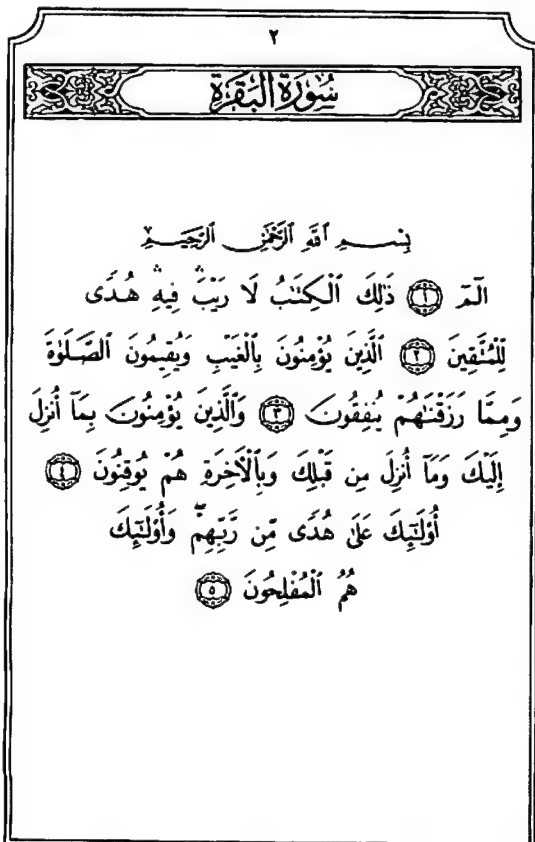 ٢
سُورَةُ الْبَقَرَةِ
بِسْمِ ٱللَّهِ ٱلرَّحْمَٰنِ ٱلرَّحِيمِ
الٓمٓ ١ ذَٰلِكَ ٱلْكِتَٰبُ لَا رَيْبَۛ فِيهِۛ هُدًى
لِّلْمُتَّقِينَ ٢ ٱلَّذِينَ يُؤْمِنُونَ بِٱلْغَيْبِ وَيُقِيمُونَ ٱلصَّلَوٰةَ
وَمِمَّا رَزَقْنَٰهُمْ يُنفِقُونَ ٣ وَٱلَّذِينَ يُؤْمِنُونَ بِمَآ أُنزِلَ
إِلَيْكَ وَمَآ أُنزِلَ مِن قَبْلِكَ وَبِٱلْأَخِرَةِ هُمْ يُوقِنُونَ ٤
أُو۟لَٰٓئِكَ عَلَىٰ هُدًى مِّن رَّبِّهِمْۖ وَأُو۟لَٰٓئِكَ
هُمُ ٱلْمُفْلِحُونَ ٥